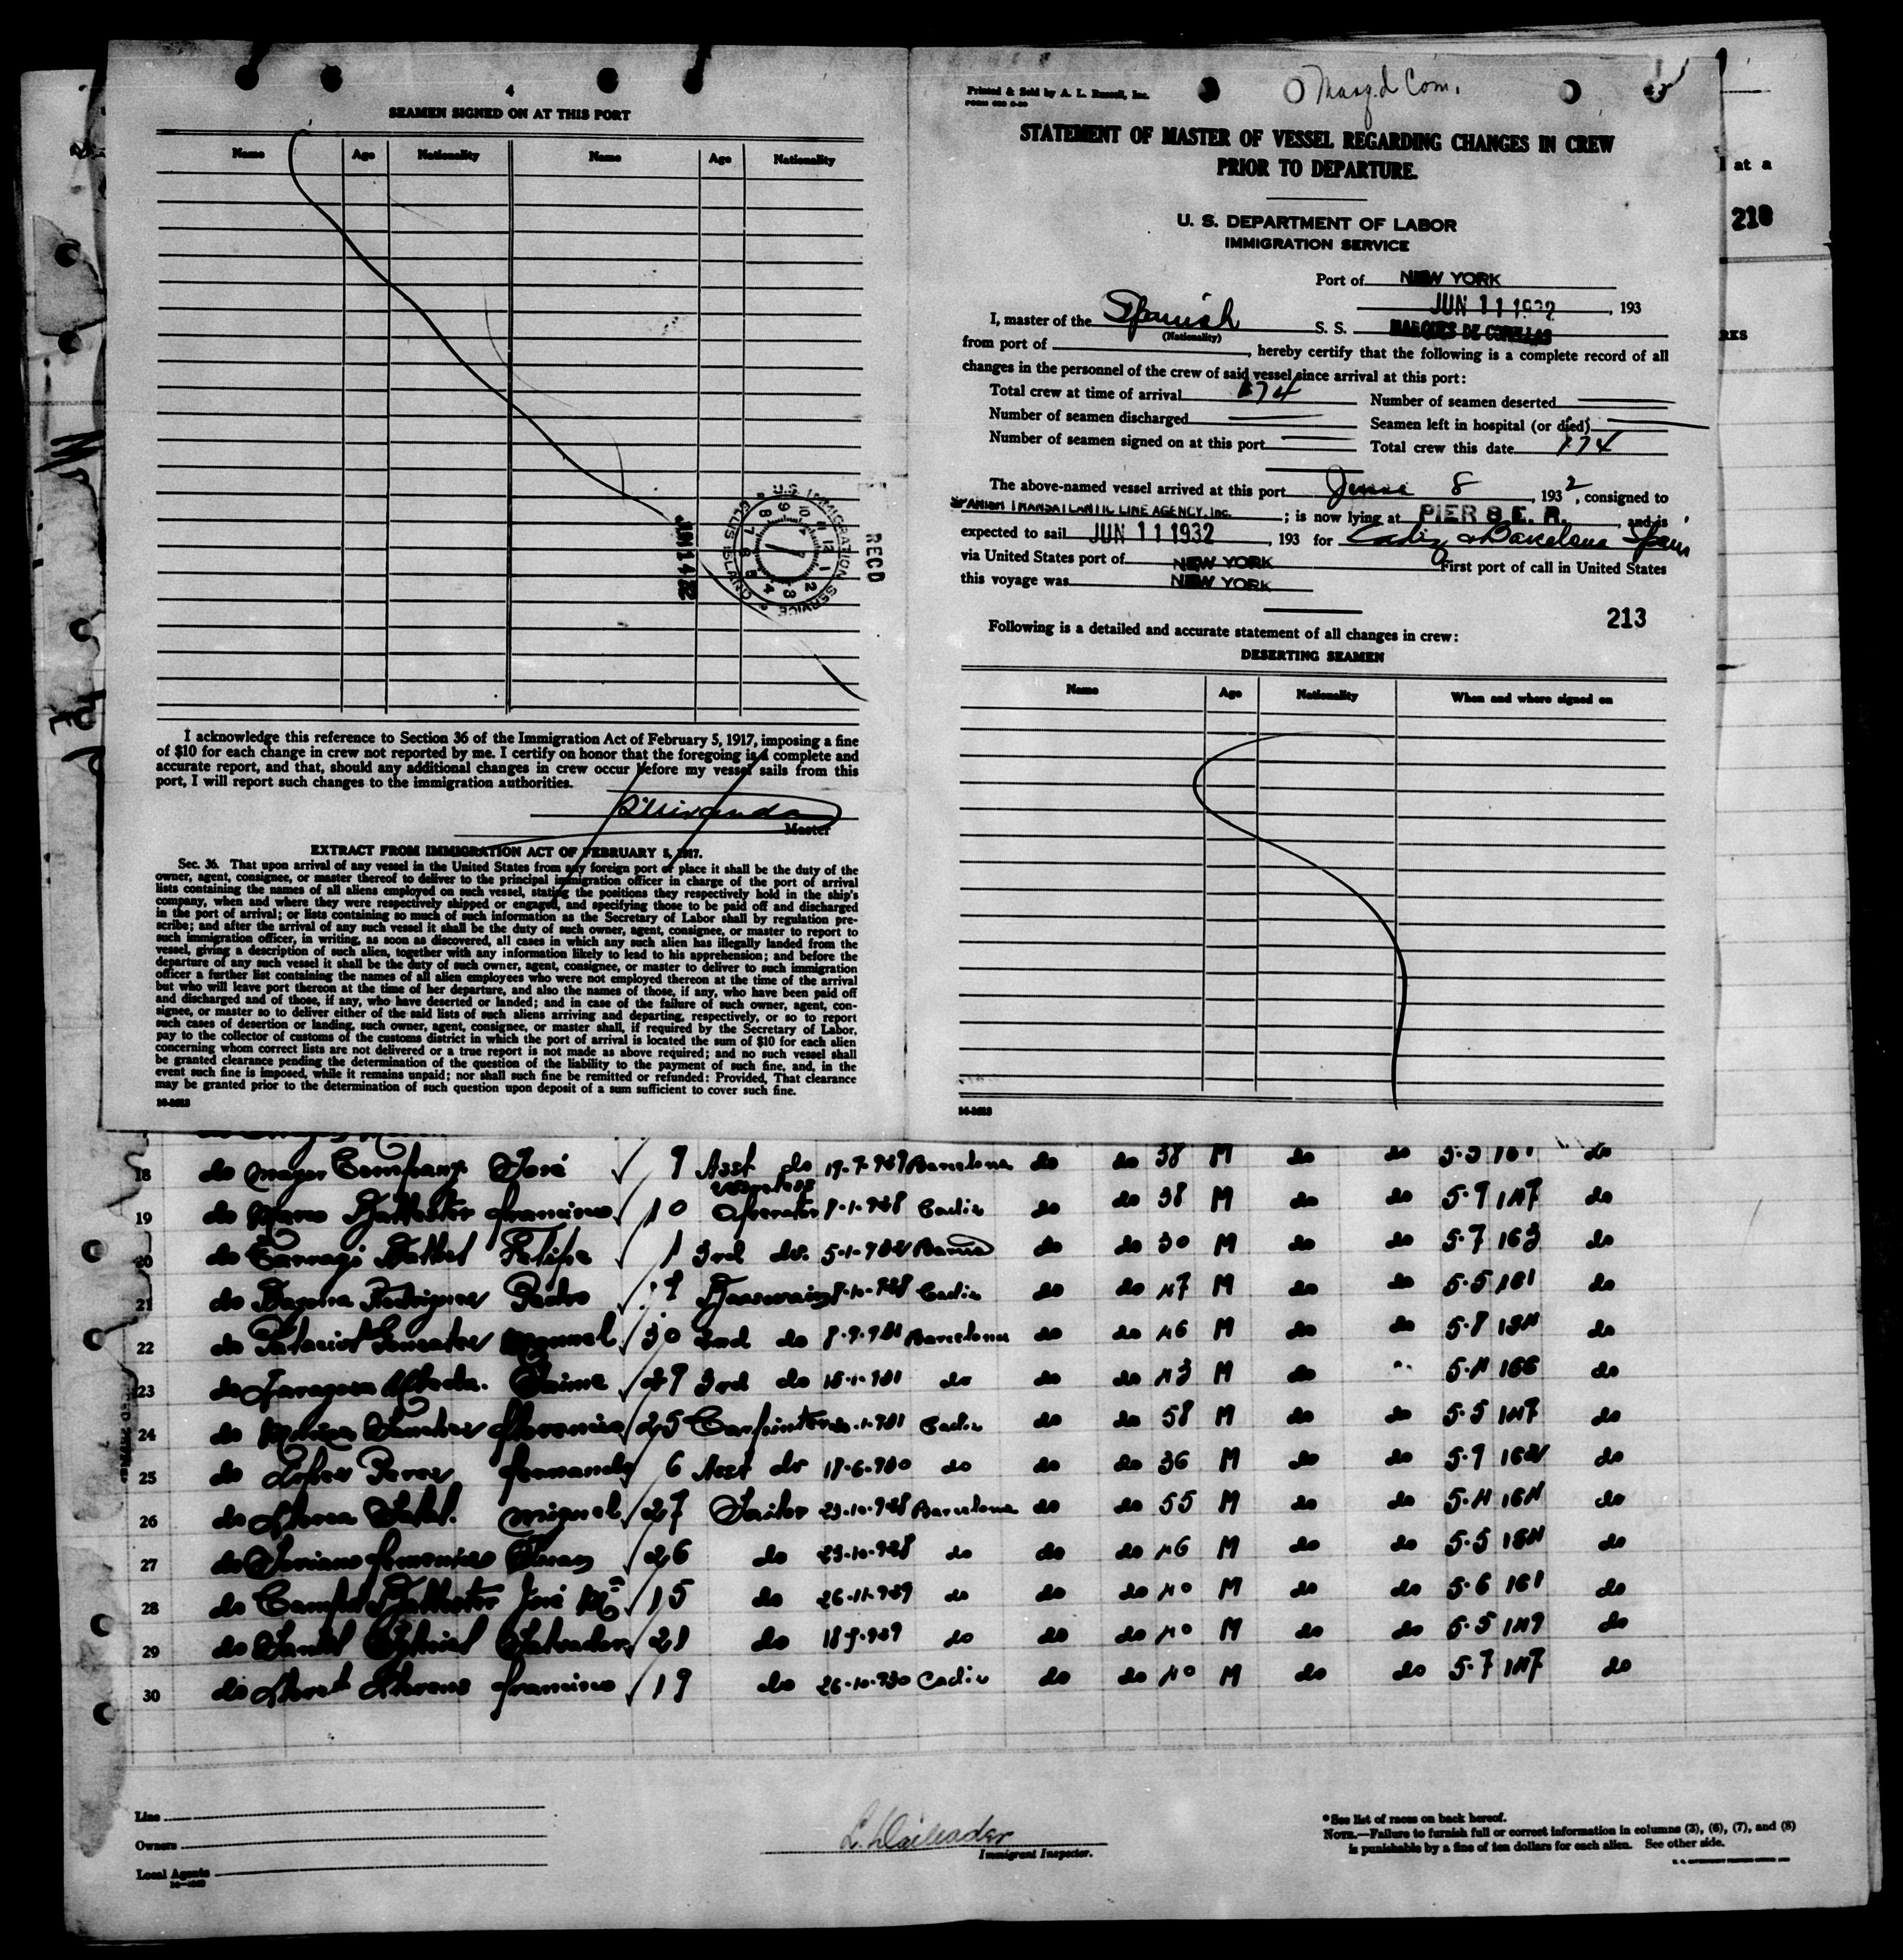 4
SEAMEN SIGNED ON AT THIS PORT
Name Age Nationality Name Age Nationality
RECD
JUN 14 32
U.S. IMMIGRATION SERVICE
ELLIS ISLAND
I acknowledge this reference to Section 36 of the Immigration Act of February 5, 1917, imposing a fine
of $10 for each change in crew not reported by me. I certify on honor that the foregoing is a complete and
accurate report, and that, should any additional changes in crew occur before my vessel sails from this
port, I will report such changes to the immigration authorities.
Master
EXTRACT FROM IMMIGRATION ACT OF FEBRUARY 5, 1917.
Sec. 36. That upon arrival of any vessel in the United States from any foreign port or place it shall be the duty of the
owner, agent, consignee, or master thereof to deliver to the principal immigration officer in charge of the port of arrival
lists containing the names of all aliens employed on such vessel, stating the positions they respectively hold in the ship's
company, when and where they were respectively shipped or engaged, and specifying those to be paid off and discharged
in the port of arrival; or lists containing so much of such information as the Secretary of Labor shall by regulation pre-
scribe; and after the arrival of any such vessel it shall be the duty of such owner, agent, consignee, or master to report to
such immigration officer, in writing, as soon as discovered, all cases in which any such alien has illegally landed from the
vessel, giving a description of such alien, together with any information likely to lead to his apprehension; and before the
departure of any such vessel it shall be the duty of such owner, agent, consignee, or master to deliver to such immigration
officer a further list containing the names of all alien employees who were not employed thereon at the time of the arrival
but who will leave port thereon at the time of her departure, and also the names of those, if any, who have been paid off
and discharged and of those, if any, who have deserted or landed; and in case of the failure of such owner, agent, con-
signee, or master so to deliver either of the said lists of such aliens arriving and departing, respectively, or so to report
such cases of desertion or landing, such owner, agent, consignee, or master shall, if required by the Secretary of Labor,
pay to the collector of customs of the customs district in which the port of arrival is located the sum of $10 for each alien
concerning whom correct lists are not delivered or a true report is not made as above required; and no such vessel shall
be granted clearance pending the determination of the question of the liability to the payment of such fine, and, in the
event such fine is imposed, while it remains unpaid; nor shall such fine be remitted or refunded: Provided, That clearance
may be granted prior to the determination of such question upon deposit of a sum sufficient to cover such fine.
Printed & Sold by A. L. Russell, Inc.
Marq.d Com.
STATEMENT OF MASTER OF VESSEL REGARDING CHANGES IN CREW
PRIOR TO DEPARTURE.
U. S. DEPARTMENT OF LABOR
IMMIGRATION SERVICE
Port of NEW YORK
JUN 11 1932, 193
I, master of the Spanish S. S. MARQUES DE COMILLAS
(Nationality)
from port of , hereby certify that the following is a complete record of all
changes in the personnel of the crew of said vessel since arrival at this port:
Total crew at time of arrival 174 Number of seamen deserted
Number of seamen discharged Seamen left in hospital (or died)
Number of seamen signed on at this port Total crew this date 174
The above-named vessel arrived at this port June 8, 1932, consigned to
SPANISH TRANSATLANTIC LINE AGENCY, Inc. ; is now lying at PIER 8 E. R. , and is
expected to sail JUN 11 1932, 193 for Cadiz & Barcelona Spain
via United States port of NEW YORK First port of call in United States
this voyage was NEW YORK
213
Following is a detailed and accurate statement of all changes in crew:
DESERTING SEAMEN
Name Age Nationality When and where signed on
at a
210
RKS
18 do Mayor Company José 9 Asst do 19-7-929 Barcelona do do 38 M do do 5-5 161 do
19 do Ballester Francisco 10 Operator 8-1-928 Cadiz do do 38 M do do 5-9 147 do
20 do Felipe 1 3rd do 30 M do do 5-7 163 do
21 do Rodriguez Pedro Cadiz do do 47 M do do 5-5 181 do
22 do Gonzalez Manuel 30 2nd do Barcelona do do 46 M do do 5-8 184 do
23 do Zaragoza Jaime 29 3rd do do do do 43 M do 5-4 166 do
24 do Sanchez Florencio 25 Cadiz do do 58 M do do 5-5 147 do
25 do Lopez Perez Fernando 6 Asst do 18-6-930 do do do 36 M do do 5-9 162 do
26 do Miguel 27 Sailor 23-10-928 Barcelona do do 55 M do do 5-4 164 do
27 do Soriano Juan 26 do 23-10-928 do do do 46 M do do 5-5 184 do
28 do Ballester José Mª 15 do 26-11-929 do do do 40 M do do 5-6 161 do
29 do Salvador 21 do 18-9-929 do do do 40 M do do 5-5 149 do
30 do Llorens Francisco 19 do 26-10-930 Cadiz do do 40 M do do 5-7 147 do
Line
Owners
Local Agents
Immigrant Inspector.
*See list of races on back hereof.
NOTE.—Failure to furnish full or correct information in columns (3), (6), (7), and (8)
is punishable by a fine of ten dollars for each alien. See other side.